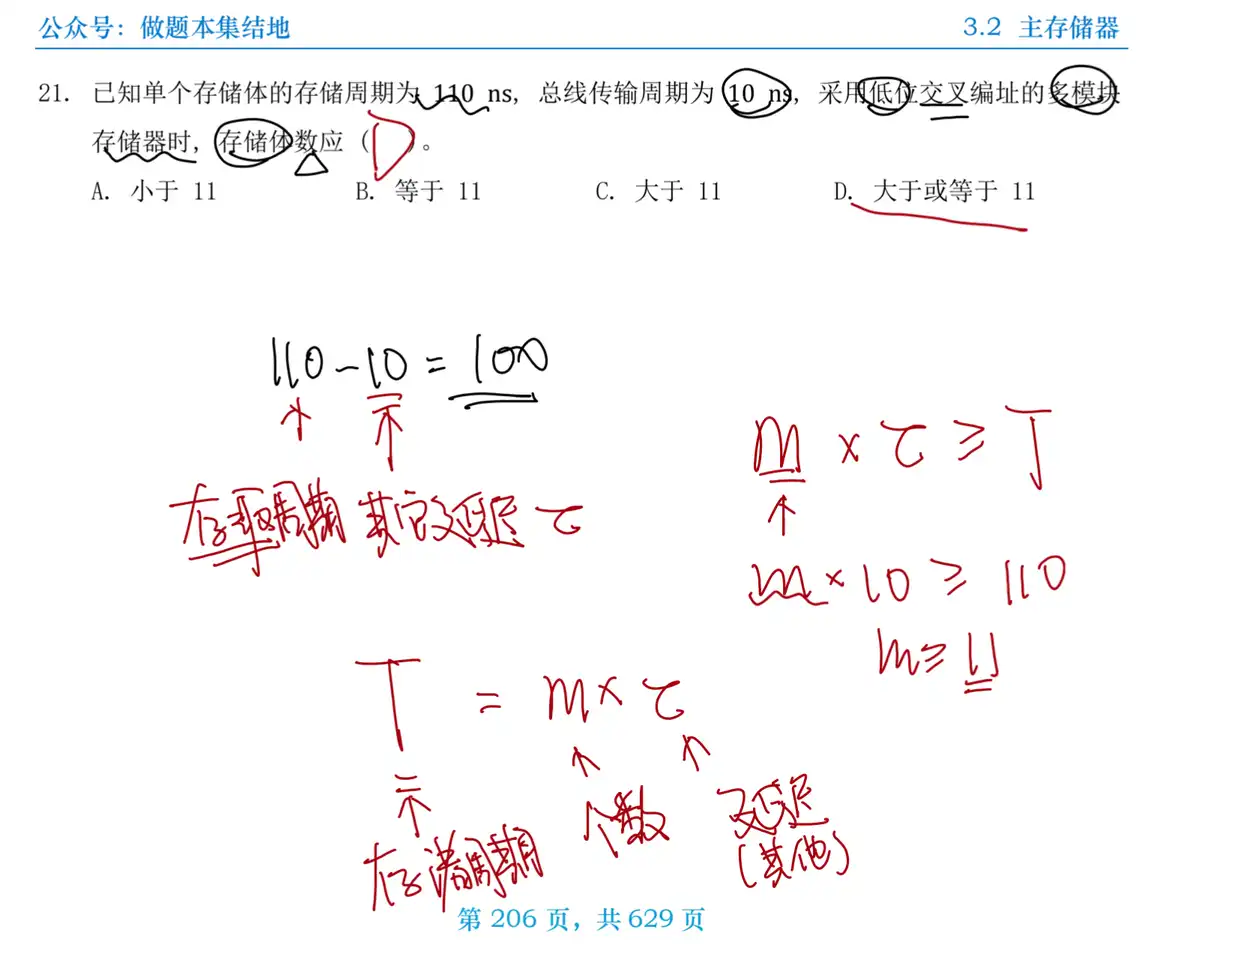 公众号：做题本集结地 3.2 主存储器
21. 已知单个存储体的存储周期为 110 ns，总线传输周期为 10 ns，采用低位交叉编址的多模块
存储器时，存储体数应（ D ）。
A. 小于 11 B. 等于 11 C. 大于 11 D. 大于或等于 11
110-10=100
m×τ≥T
存取周期 其它延迟 τ
m×10≥110
m≥11
T = m×τ
个数 延迟
存储周期 (其他)
第 206 页，共 629 页